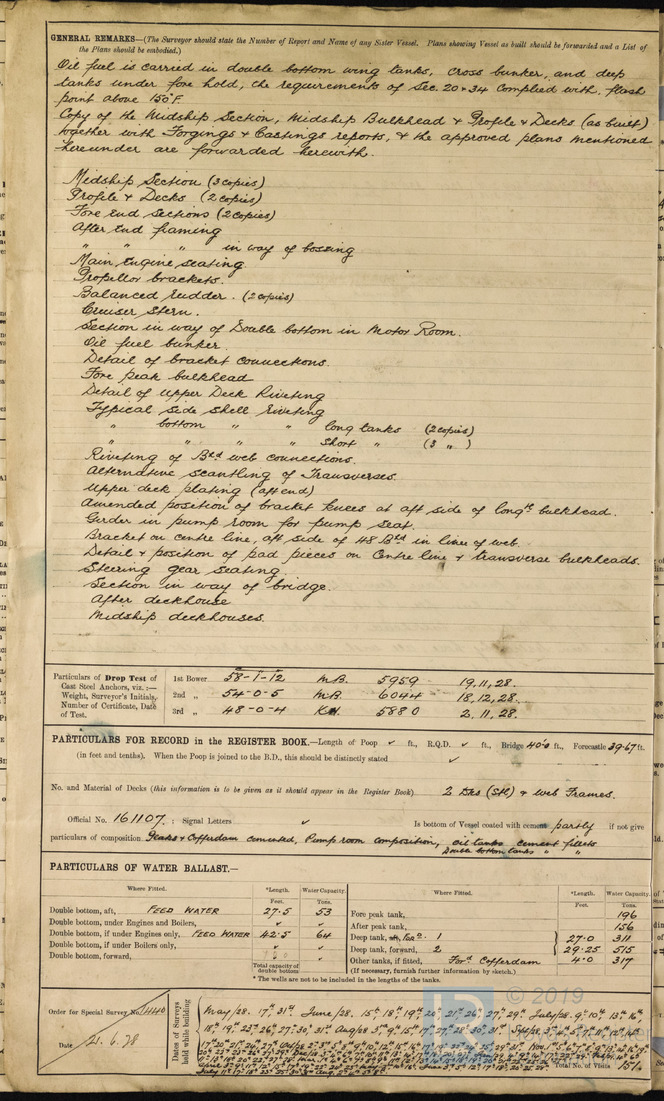 GENERAL REMARKS—(The Surveyor should state the Number of Report and Name of any Sister Vessel. Plans showing Vessel as built should be forwarded and a List of
the Plans should be embodied.)
Oil fuel is carried in double bottom wing tanks, cross bunker, and deep
tanks under fore hold, the requirements of Sec. 20 & 34 complied with. flash
point above 150°F.
Copy of the Midship Section, Midship Bulkhead & Profile & Decks (as built)
together with Forgings & Castings reports, & the approved plans mentioned
hereunder are forwarded herewith.
Midship Section (3 copies)
Profile & Decks (2 copies)
Fore End Sections (2 copies)
After End framing
" " " in way of bossing
Main Engine seating.
Propellor brackets.
Balanced rudder. (2 copies)
Cruiser Stern.
Section in way of Double bottom in Motor Room.
Oil fuel bunker.
Detail of bracket connections.
Fore peak bulkhead
Detail of Upper Deck Riveting
Typical side shell riveting
" bottom " " long tanks (2 copies)
" " " " short " (3 " )
Riveting of Bhd web connections.
Alternative scantling of Transverses.
Upper deck plating (aft end)
Amended position of bracket knees at aft side of longl bulkhead.
Girder in pump room for pump seat.
Bracket on centre line, aft side of 48 Bhd in line of web.
Detail & position of pad pieces on Centre line & transverse bulkheads.
Steering gear seating.
Section in way of bridge.
After deckhouse
Midship deckhouses.
Particulars of Drop Test of Cast Steel Anchors, viz.:— Weight, Surveyor's Initials, Number of Certificate, Date of Test.
1st Bower 58-1-12 M.B. 5959 19.11.28.
2nd " 54-0-5 M.B. 6044 18.12.28.
3rd " 48-0-4 K.H. 5880 2.11.28.
PARTICULARS FOR RECORD in the REGISTER BOOK.—Length of Poop ✓ ft., R.Q.D. ✓ ft., Bridge 40·0 ft., Forecastle 39·67 ft.
(in feet and tenths). When the Poop is joined to the B.D., this should be distinctly stated ✓
No. and Material of Decks (this information is to be given as it should appear in the Register Book) 2 Dks (Stl) & web Frames.
Official No. 161107. ; Signal Letters ✓ Is bottom of Vessel coated with cement partly if not give
particulars of composition Peaks & Cofferdam cemented, Pump room composition, oil tanks cement fillets
Double bottom tanks " "
PARTICULARS OF WATER BALLAST.—
Where Fitted. *Length. Water Capacity. Where Fitted. *Length. Water Capacity.
Feet. Tons. Feet. Tons.
Double bottom, aft, FEED WATER 27·5 53
Double bottom, under Engines and Boilers, ✓ ✓
Double bottom, if under Engines only, FEED WATER 42·5 64
Double bottom, if under Boilers only, ✓ ✓
Double bottom, forward,
Total capacity of double bottom
Fore peak tank, 196
After peak tank, 156
Deep tank, 1 27·0 311
Deep tank, forward, 2 29·25 515
Other tanks, if fitted, Ford Cofferdam 4·0 317
(If necessary, furnish further information by sketch.)
* The wells are not to be included in the lengths of the tanks.
Order for Special Survey No. 1440
Date 21.6.28
Dates of Surveys held while building
May/28. 17th 31st June/28. 15th 18th 19th 20th 21st 26th 27th 29th July/28.
Total No. of Visits 151
© 2019